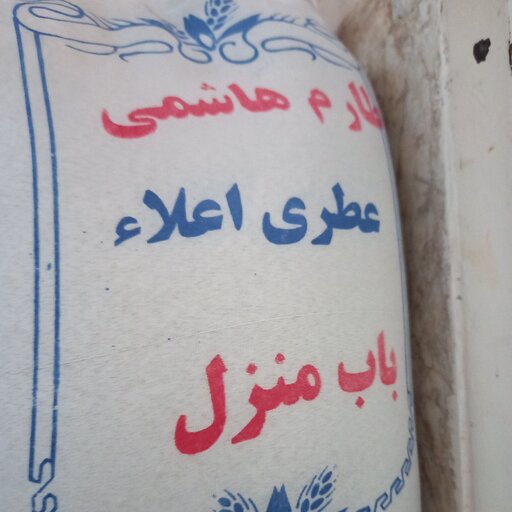 طارم هاشمی
عطری اعلاء
باب منزل